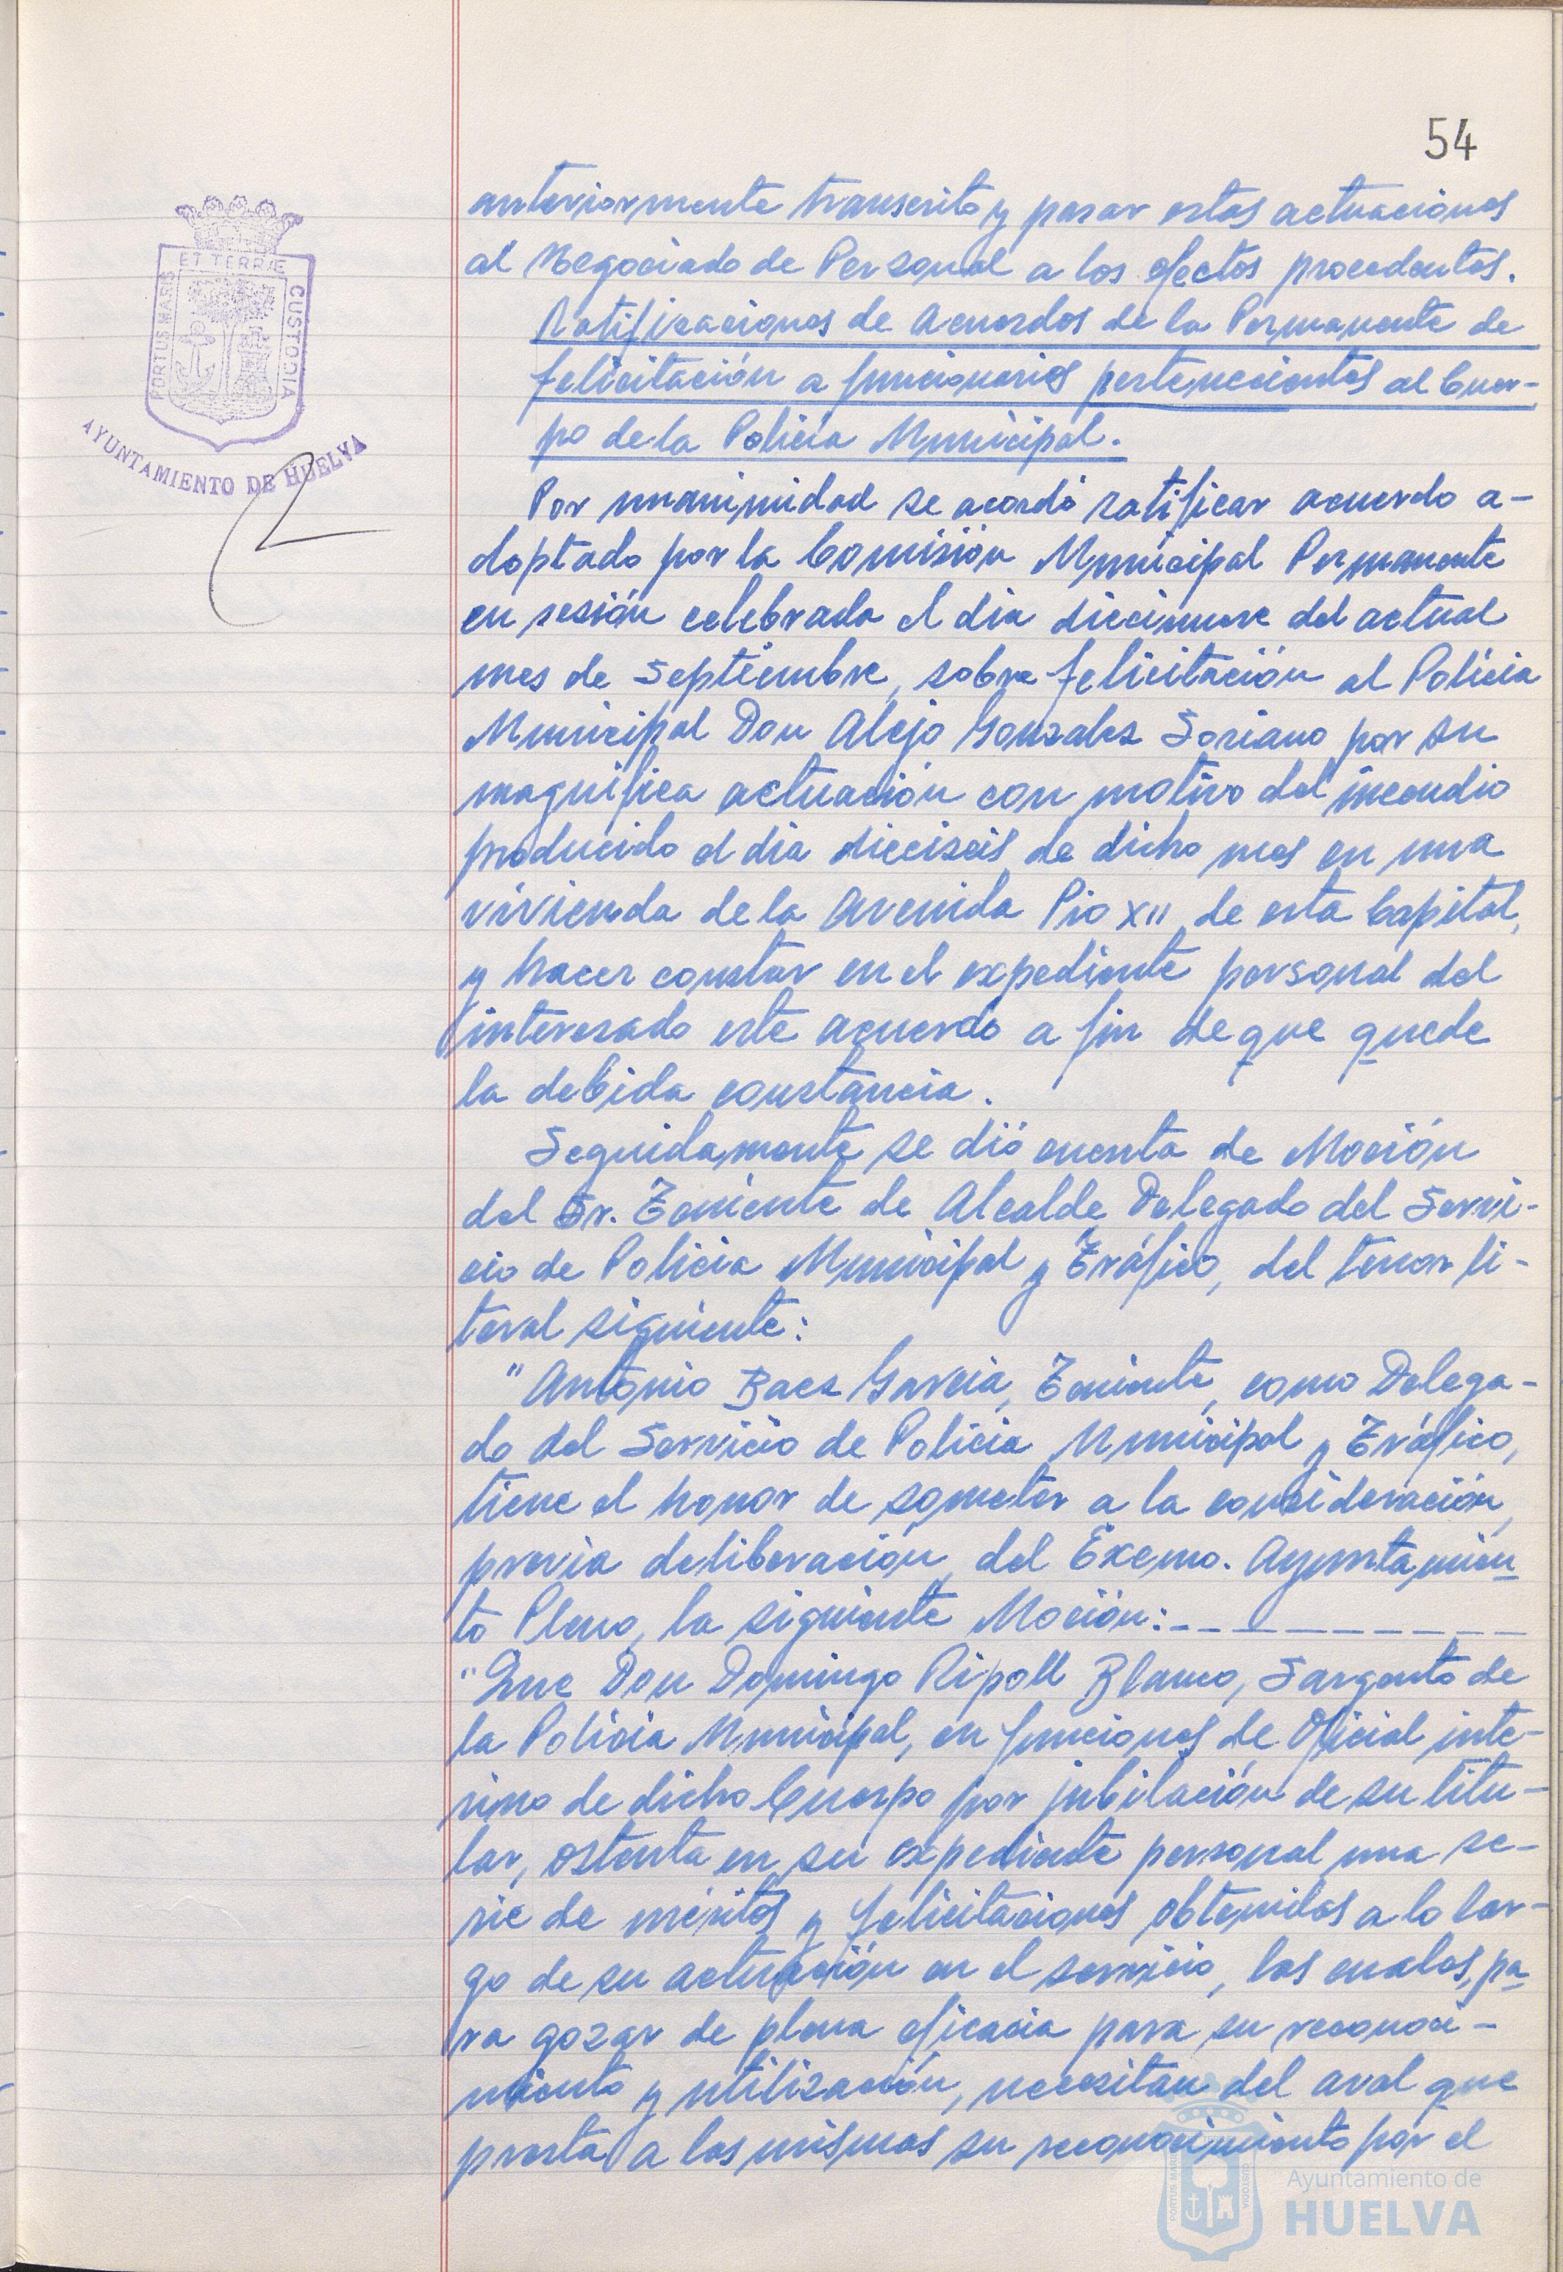 54
ET TERRÆ
PORTUS MARIS
CUSTODIA
AYUNTAMIENTO DE HUELVA
anteriormente transcrito y pasar estas actuaciones
al Negociado de Personal a los efectos procedentes.
Ratificaciones de Acuerdos de la Permanente de
felicitación a funcionarios pertenecientes al Cuer-
po de la Policia Municipal.
Por unanimidad se acordó ratificar acuerdo a-
doptado por la Comisión Municipal Permanente
en sesión celebrada el dia diecinueve del actual
mes de Septiembre, sobre felicitación al Policia
Municipal Don Alejo Gonzalez Soriano por su
magnífica actuación con motivo del incendio
producido el dia dieciseis de dicho mes en una
vivienda de la Avenida Pio XII de esta Capital,
y hacer constar en el expediente personal del
interesado este acuerdo a fin de que quede
la debida constancia.
Seguidamente se dió cuenta de Moción
del Sr. Teniente de Alcalde Delegado del Servi-
cio de Policia Municipal y Tráfico, del tenor li-
teral siguiente:
"Antonio Baez Garcia, Teniente, como Delega-
do del Servicio de Policia Municipal y Tráfico,
tiene el honor de someter a la consideración,
previa deliberación, del Excmo. Ayuntamien
to Pleno, la siguiente Moción:
"Que Don Domingo Ripoll Blanco, Sargento de
la Policia Municipal, en funciones de Oficial inte-
rino de dicho Cuerpo por jubilación de su titu-
lar, ostenta en su expediente personal una se-
rie de méritos y felicitaciones obtenidas a lo lar-
go de su actuación en el servicio, las cuales, pa
ra gozar de plena eficacia para su reconoci-
miento y utilización, necesitan del aval que
presta a las mismas su reconocimiento por el
PORTUS MARIS
CUSTODIA
Ayuntamiento de
HUELVA